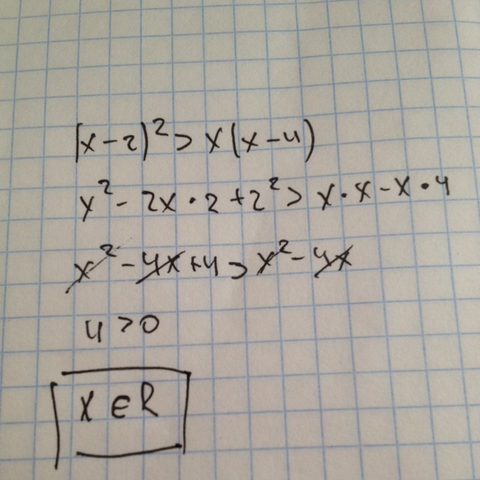 (x-2)²>x(x-4)
x²-2x·2+2²>x·x-x·4
x²-4x+4>x²-4x
4>0
x∈R